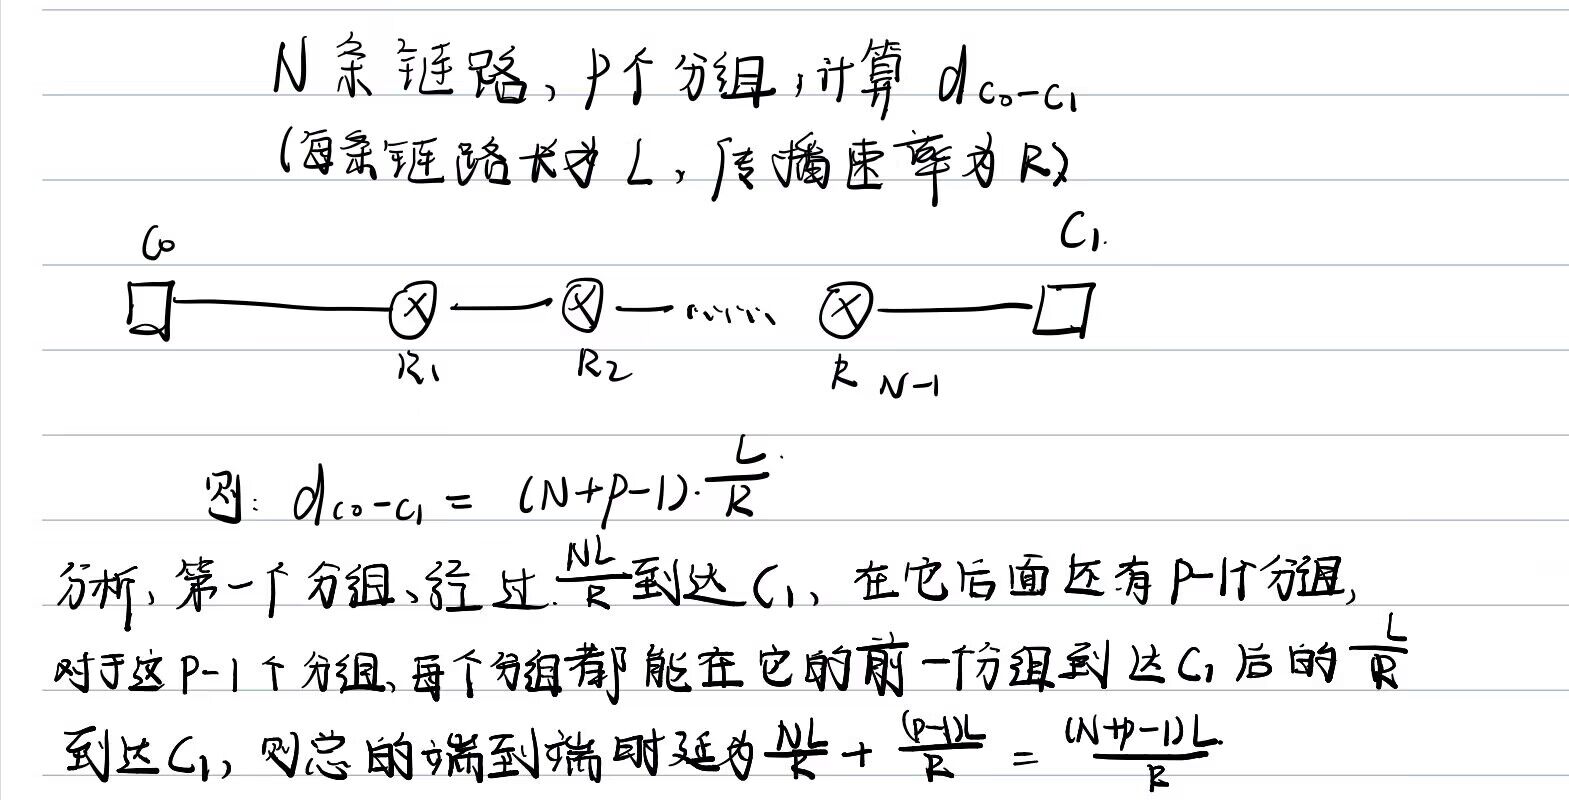 N条链路，P个分组，计算 d_{C₀-C₁}
（每条链路长为L，传播速率为R）
C₀ C₁.
R₁ R₂ ...... R_{N-1}
则: d_{C₀-C₁} = (N+P-1)·\frac{L}{R}
分析，第一个分组、经过\frac{NL}{R}到达C₁，在它后面还有P-1个分组，
对于这P-1个分组、每个分组都能在它的前一个分组到达C₁后的\frac{L}{R}
到达C₁，则总的端到端时延为\frac{NL}{R} + \frac{(P-1)L}{R} = \frac{(N+P-1)L}{R}